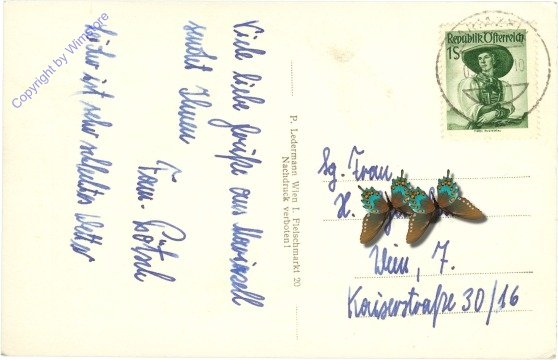 Viele liebe Grüße aus Mariazell
sendet Ihnen
Fam.
Leider ist sehr schlechtes Wetter
Copyright by Wimstore
P. Ledermann Wien I. Fleischmarkt 20
Nachdruck verboten!
Republik Österreich
1S
Sg. Frau
H.
Wien, 7.
Kaiserstraße 30/16